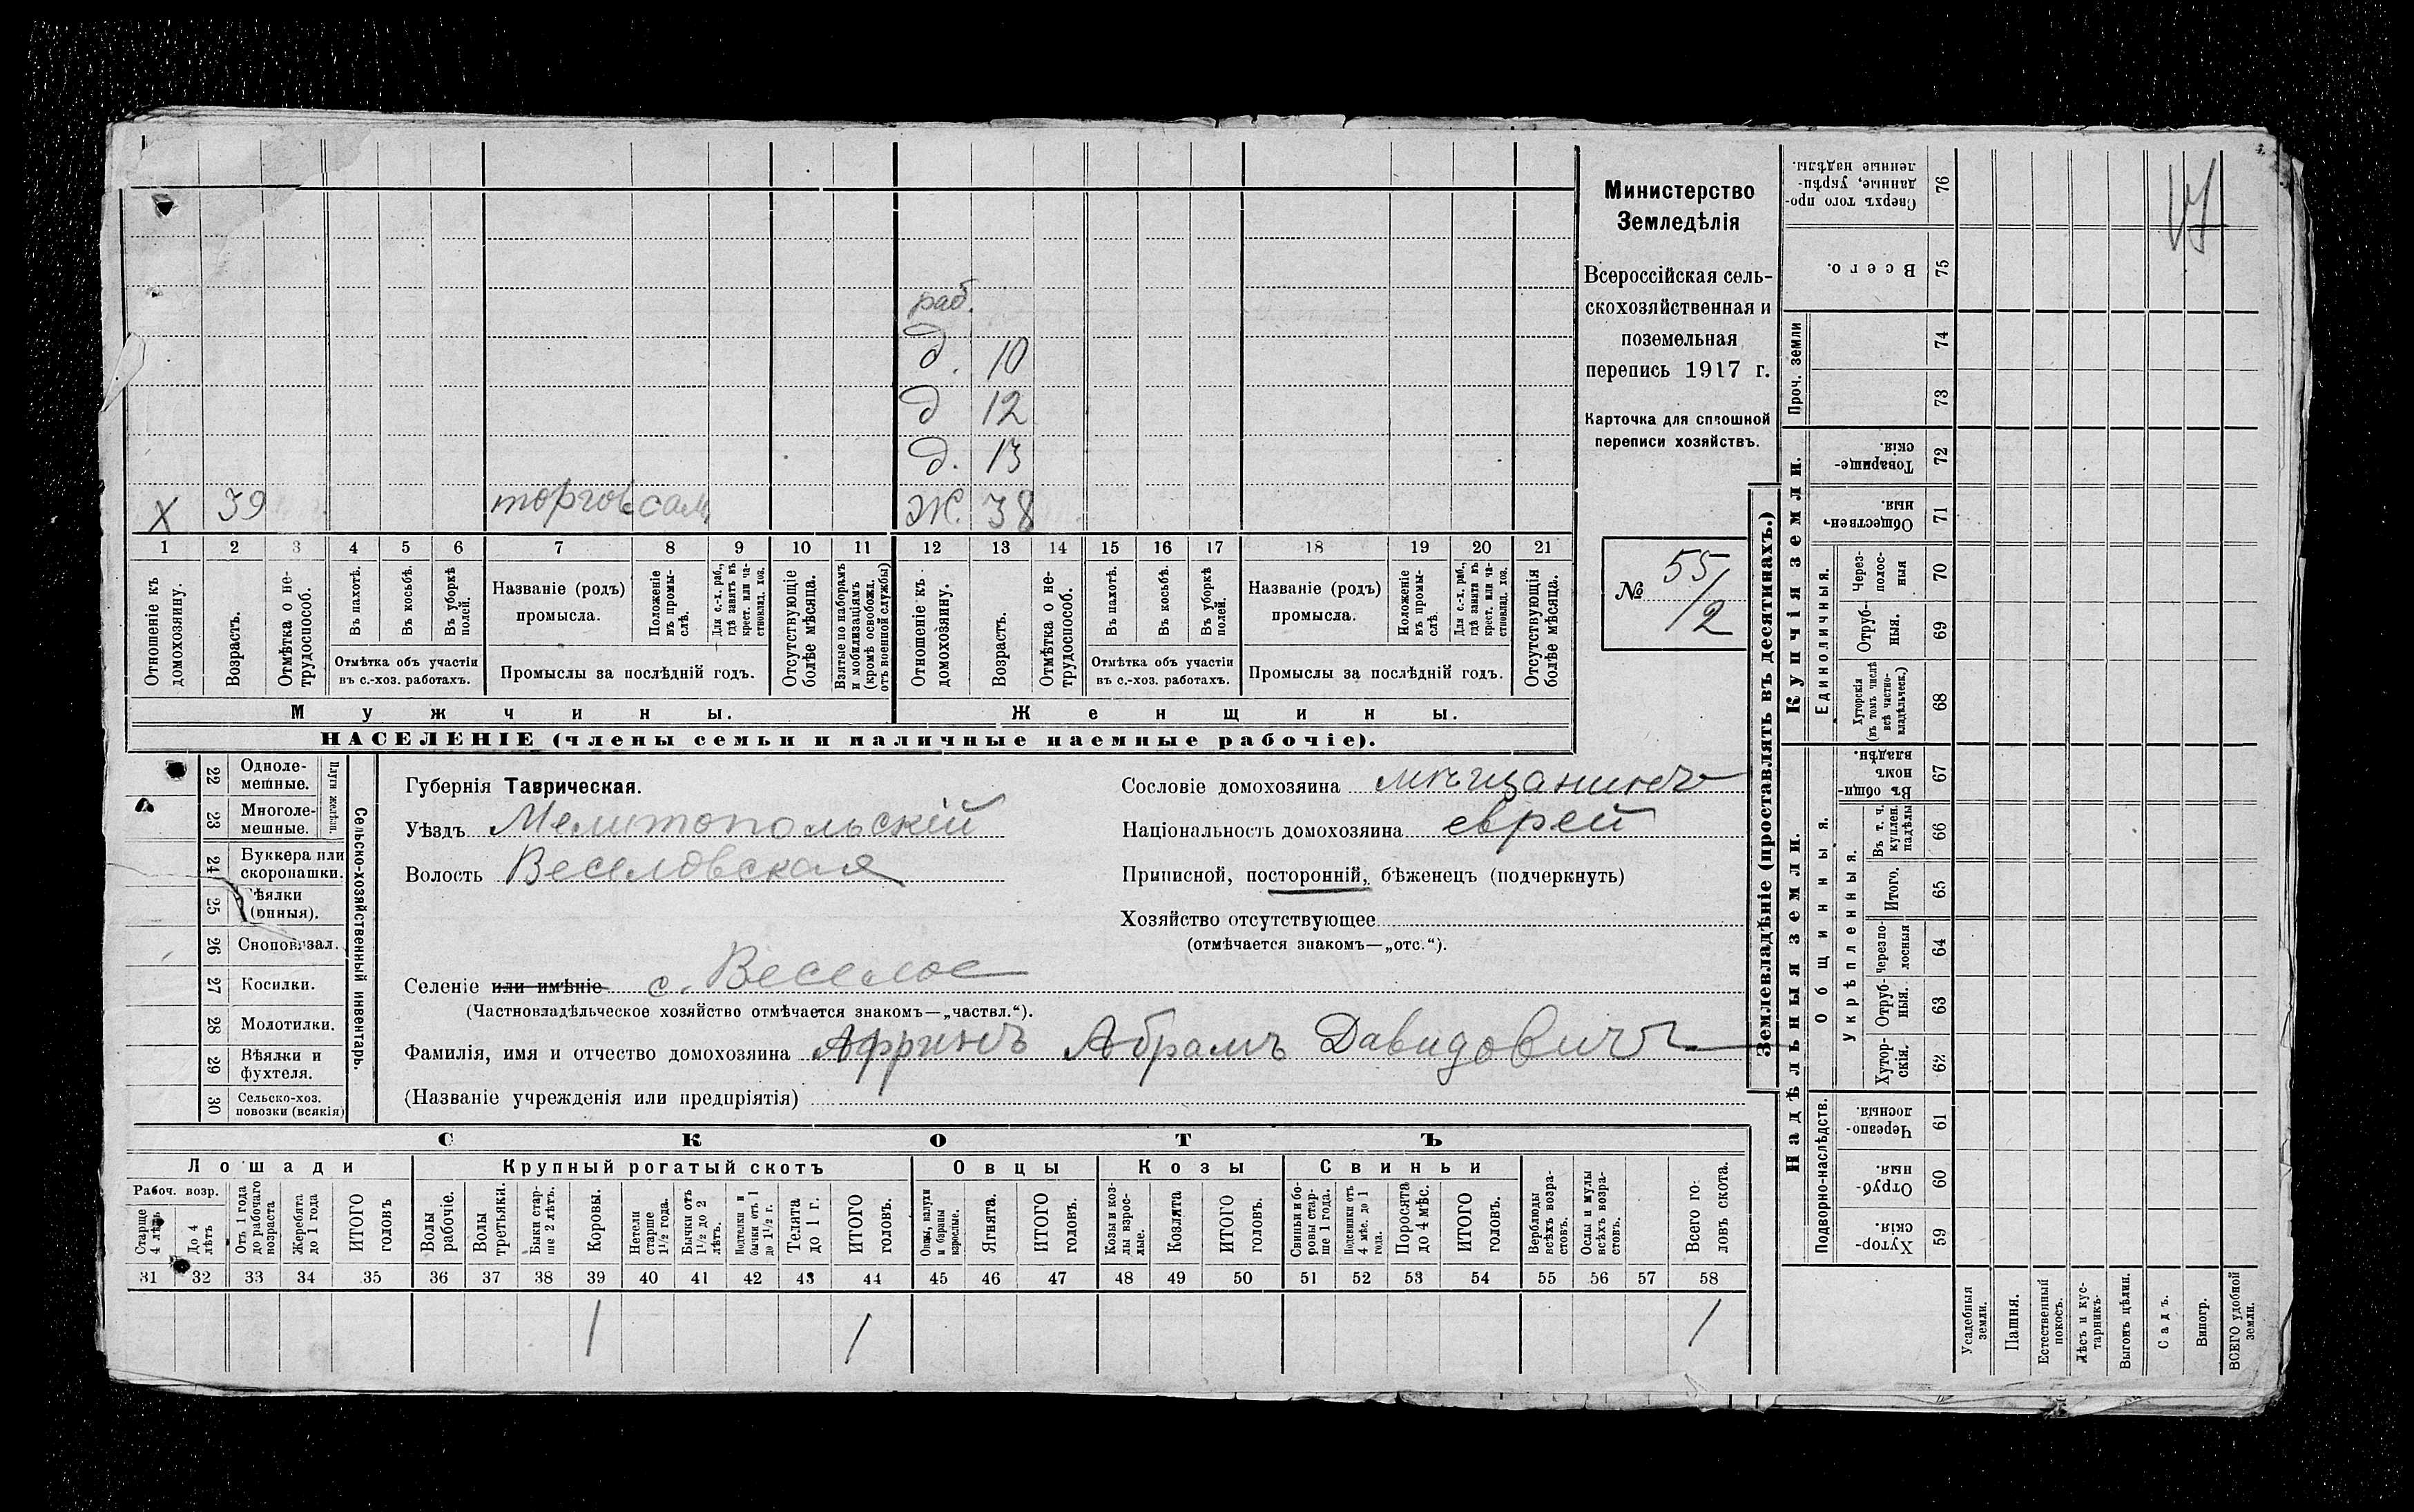 раб.
д. 10
д 12
д. 13
X 39 торгов. сам. Ж. 38
1 2 3 4 5 6 7 8 9 10 11 12 13 14 15 16 17 18 19 20 21
Отношеніе къ домохозяину.
Возрастъ.
Отмѣтка о не-
трудоспособ.
Въ пахотѣ.
Въ косьбѣ.
Въ уборкѣ
полей.
Отмѣтка объ участіи
въ с.-хоз. работахъ.
Названіе (родъ)
промысла.
Положеніе
въ промы-
слѣ.
Для с.-х. раб.,
гдѣ занятъ въ
крест. или ча-
стновлад. хоз.
Промыслы за послѣдній годъ.
Отсутствующіе
болѣе мѣсяца.
Взятые по наборамъ
и мобилизаціямъ
(кромѣ освобожд.
отъ военной службы)
Отношеніе къ
домохозяину.
Возрастъ.
Отмѣтка о не-
трудоспособ.
Въ пахотѣ.
Въ косьбѣ.
Въ уборкѣ
полей.
Отмѣтка объ участіи
въ с.-хоз. работахъ.
Названіе (родъ)
промысла.
Положеніе
въ промы-
слѣ.
Для с.-х. раб.,
гдѣ занята въ
крест. или ча-
стновлад. хоз.
Промыслы за послѣдній годъ.
Отсутствующія
болѣе мѣсяца.
Мужчины. Женщины.
НАСЕЛЕНІЕ (члены семьи и наличные наемные рабочіе).
Министерство
Земледѣлія
Всероссійская сель-
скохозяйственная и
поземельная
перепись 1917 г.
Карточка для сплошной
переписи хозяйствъ.
№ 55/2
22 Одноле-
мешные.
23 Многоле-
мешные.
Плуги желѣзн.
24 Буккера или
скоропашки.
25 Сѣялки
(онныя).
26 Сноповязал.
27 Косилки.
28 Молотилки.
29 Вѣялки и
фухтеля.
30 Сельско-хоз.
повозки (всякія)
Сельско-хозяйственный инвентарь.
Губернія Таврическая.
Уѣздъ Мелитопольскій
Волость Веселовская
Сословіе домохозяина мѣщанинъ
Національность домохозяина еврей
Приписной, посторонній, бѣженецъ (подчеркнуть)
Хозяйство отсутствующее
(отмѣчается знакомъ—„отс.“).
Селеніе или имѣніе с. Веселое
(Частновладѣльческое хозяйство отмѣчается знакомъ—„частвл.“).
Фамилія, имя и отчество домохозяина Афринъ Абрамъ Давидовичъ
(Названіе учрежденія или предпріятія)
СКОТЪ
Лошади
Рабоч. возр.
Старше
4 лѣтъ
До 4
лѣтъ
Отъ 1 года
до рабочаго
возраста
Жеребята
до 1 года
ИТОГО
головъ
Крупный рогатый скотъ
Волы
рабочіе.
Волы
третьяки.
Быки стар-
ше 2 лѣтъ.
Коровы.
Нетели
старше
1½ года.
Бычки отъ
1½ до 2
лѣтъ.
Подтелки и
бычки отъ 1
до 1½ г.
Телята
до 1 г.
ИТОГО
головъ.
Овцы
Овцы, валухи
и бараны
взрослые.
Ягнята.
ИТОГО
головъ.
Козы
Козы и коз-
лы взрос-
лые.
Козлята
ИТОГО
головъ.
Свиньи
Свиньи и бо-
ровы стар-
ше 1 года.
Подсвинки отъ
4 мѣс. до 1
года.
Поросята
до 4 мѣс.
ИТОГО
головъ.
Верблюды
всѣхъ возра-
стовъ.
Ослы и мулы
всѣхъ возра-
стовъ.
Всего го-
ловъ скота.
31 32 33 34 35 36 37 38 39 40 41 42 43 44 45 46 47 48 49 50 51 52 53 54 55 56 57 58
1 1 1
Землевладѣніе (проставлять въ десятинахъ.)
Купчія земли.
Сверхъ того про-
данные, укрѣп-
ленные надѣлы.
76
Всего.
75
Проч. земли
74
73
Товарище-
скія
72
Обществен-
ныя.
71
Единоличныя.
Через-
полос-
ныя
70
Отруб-
ныя.
69
Хуторскія
(въ томъ числѣ
всѣ частно-
владѣльческ.)
68
Надѣльныя земли.
Общинныя.
Въ общи-
номъ
владѣн.
67
Укрѣпленныя.
Въ т. ч.
куплен.
надѣлы
66
Итого.
65
Черезпо-
лосныя
64
Отруб-
ныя.
63
Хутор-
скія.
62
Подворно-наслѣдств.
Черезпо-
лосныя.
61
Отруб-
ныя.
60
Хутор-
скія.
59
Усадебныя
земли.
Пашня.
Естественный
покосъ.
Лѣсъ и кус-
тарникъ.
Выгонъ цѣлин.
Садъ.
Виногр.
ВСЕГО удобной
земли.